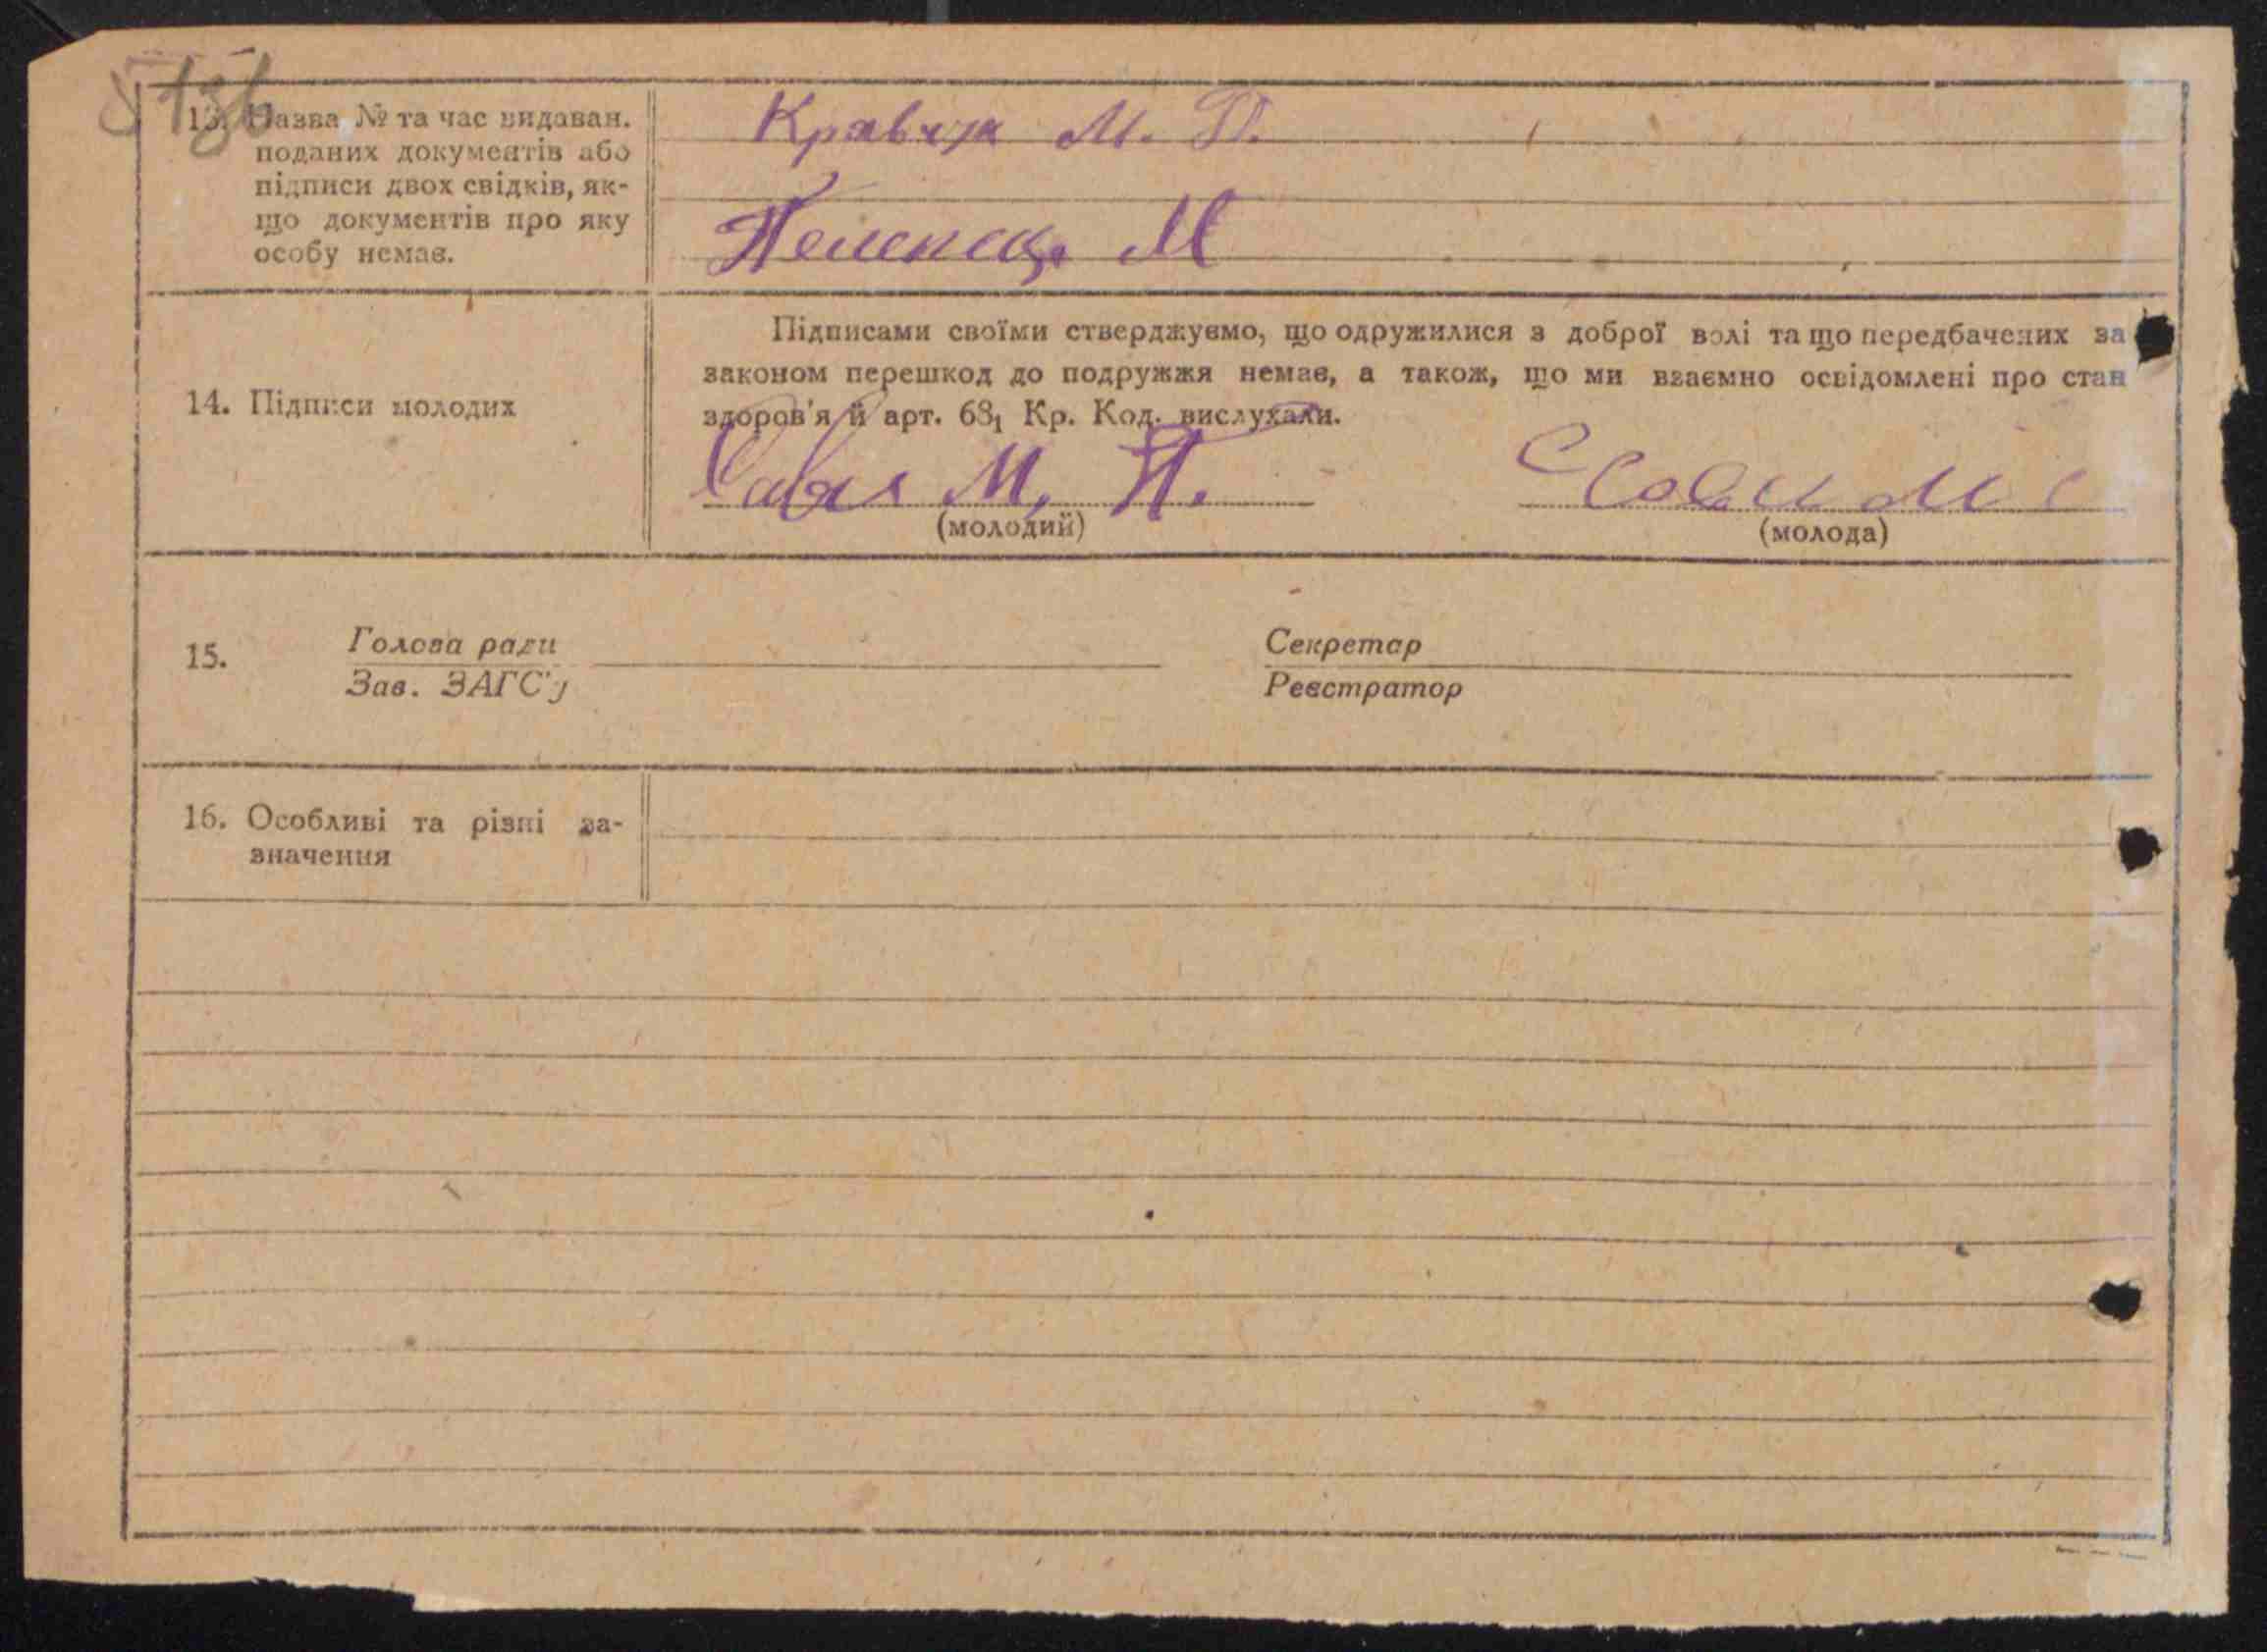 13. Назва № та час видаван.
поданих документів або
підписи двох свідків, як-
що документів про яку
особу немає.
Кравчук М. П.
М
14. Підписи молодих
Підписами своїми стверджуємо, що одружилися з доброї волі та що передбачених за
законом перешкод до подружжя немає, а також, що ми взаємно освідомлені про стан
здоров'я й арт. 68₁ Кр. Код. вислухали.
М. П.
(молодий)
(молода)
15.
Голова ради
Зав. ЗАГС'у
Секретар
Реєстратор
16. Особливі та різні за-
значення